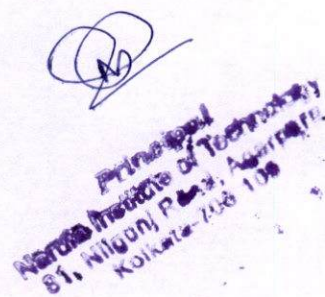 Principal
Narula Institute of Technology
81, Nilgunj Road, Agarpara,
Kolkata-700 109